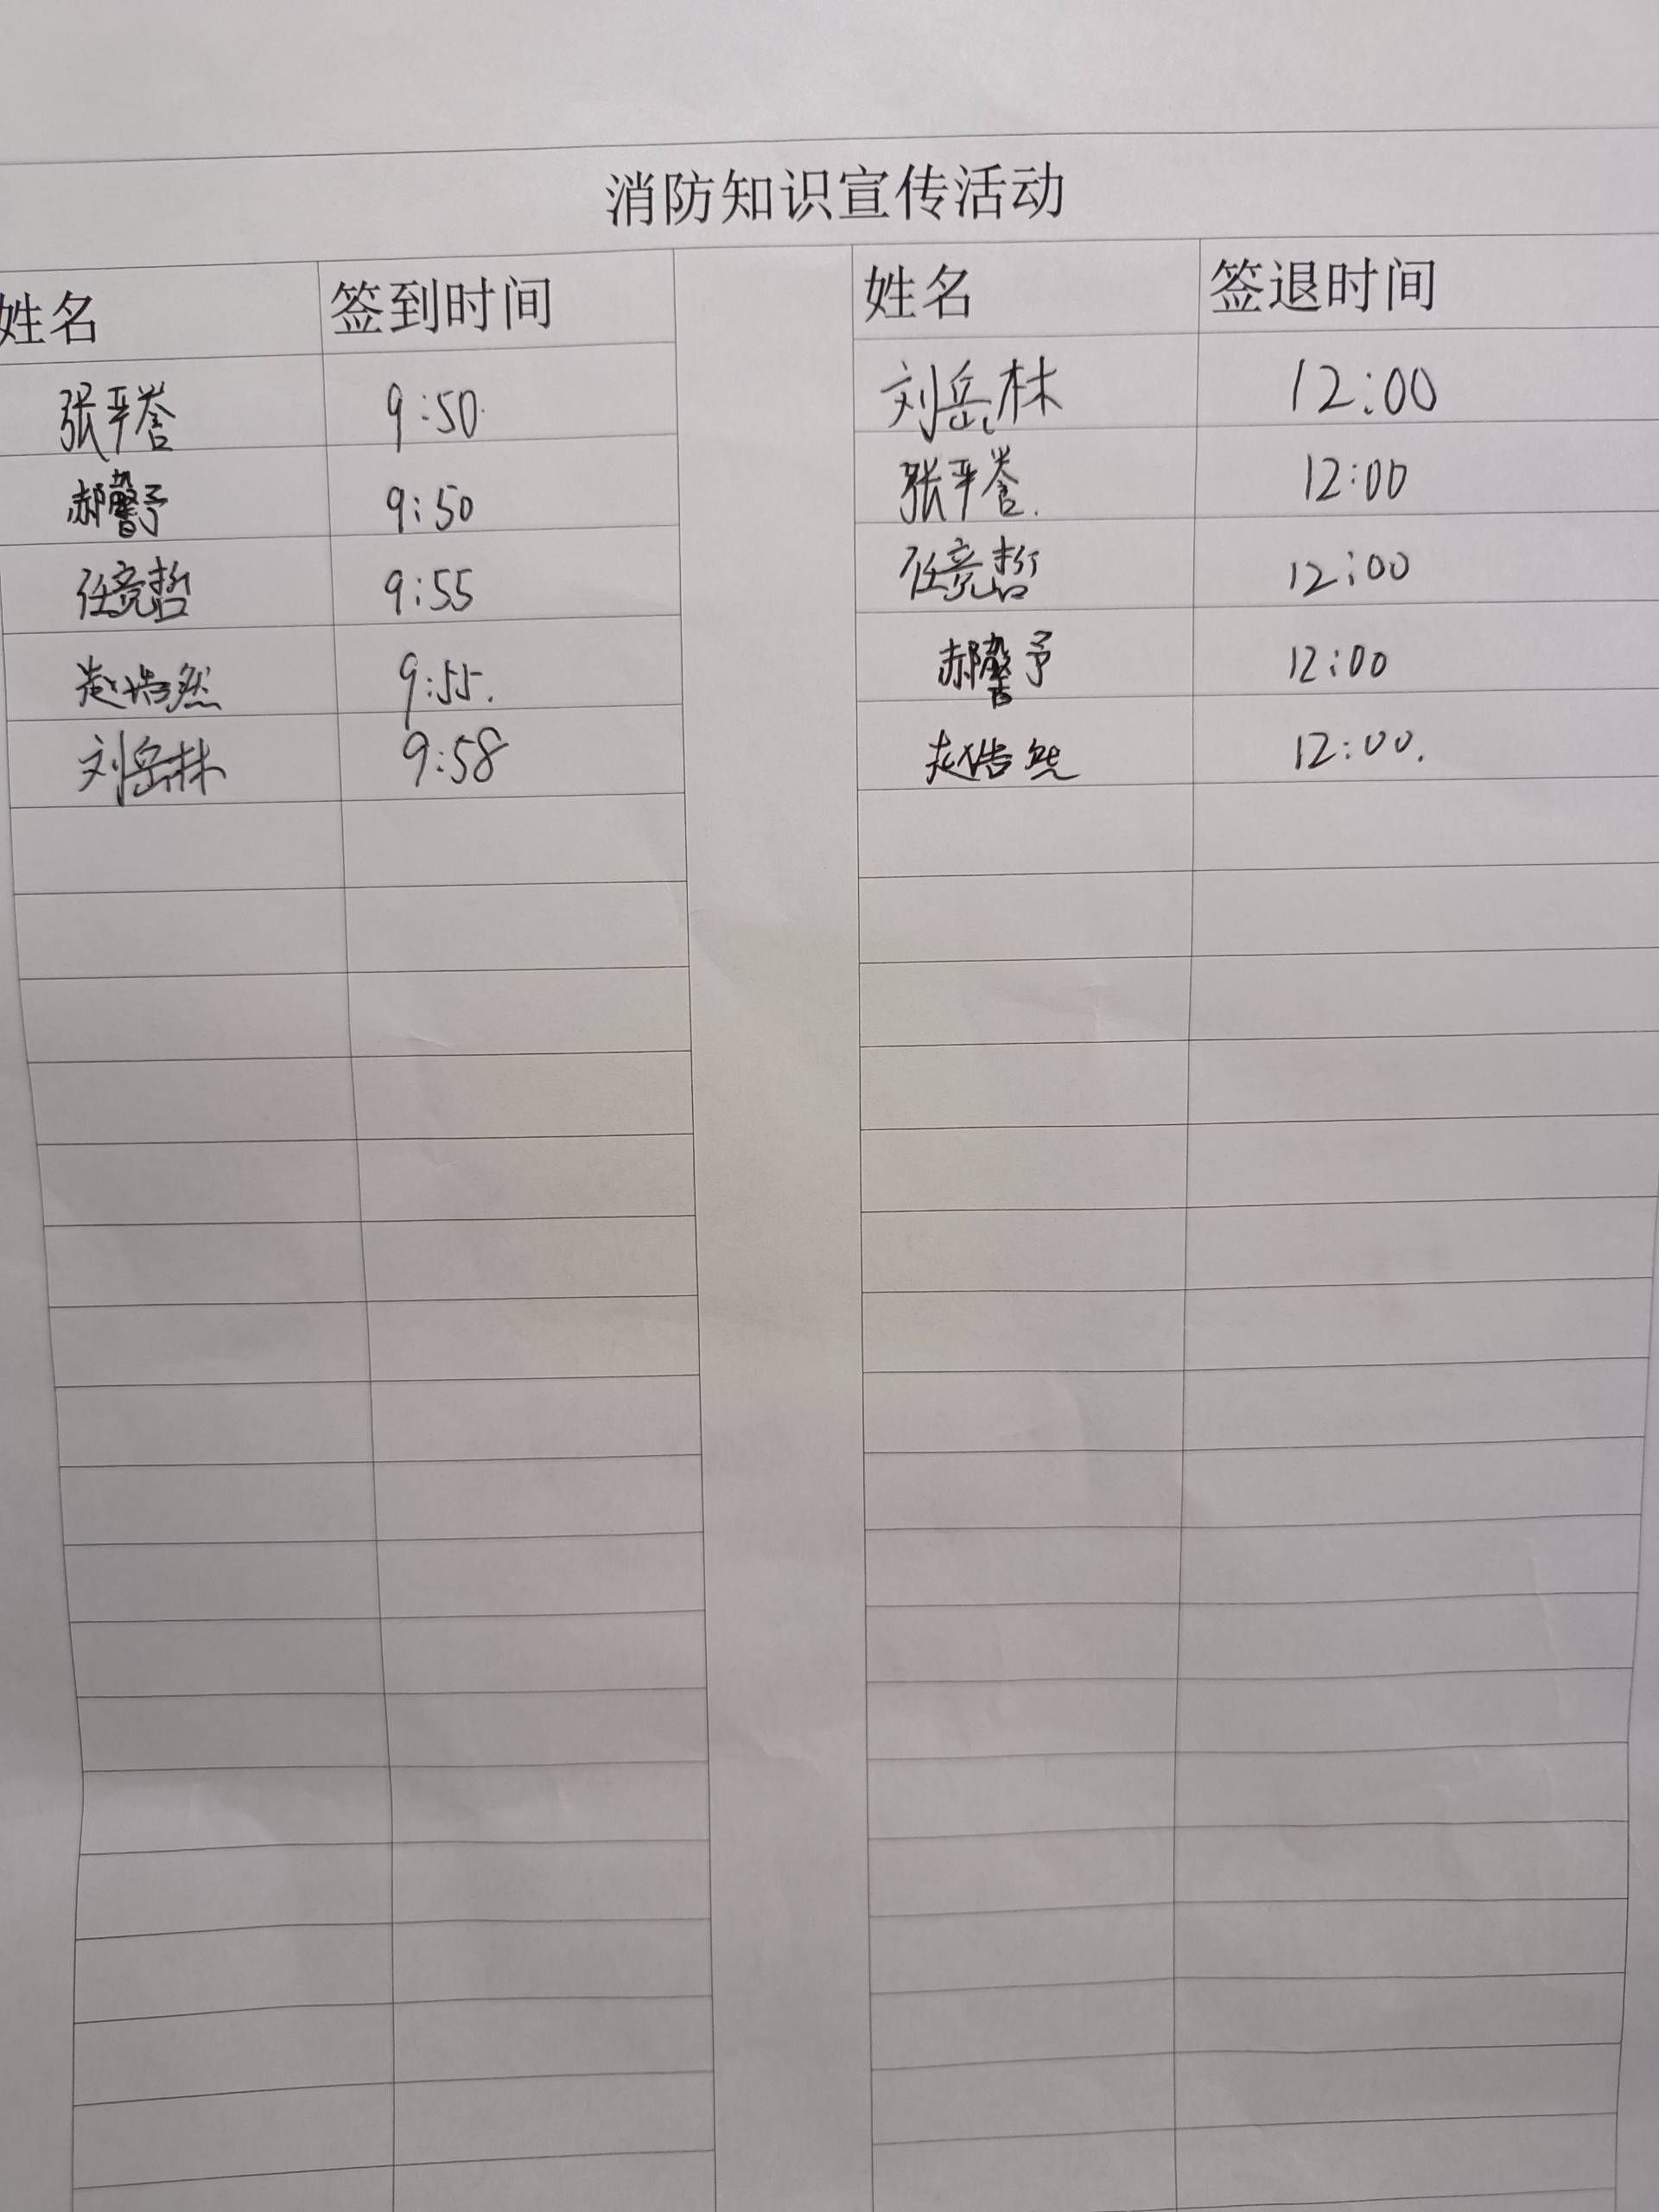 消防知识宣传活动
姓名 签到时间 姓名 签退时间
张平誉 9:50 刘岳林 12:00
郝馨予 9:50 张平誉. 12:00
任竞哲 9:55 任竞哲 12:00
赵浩然 9:55. 郝馨予 12:00
刘岳林 9:58 赵浩然 12:00.